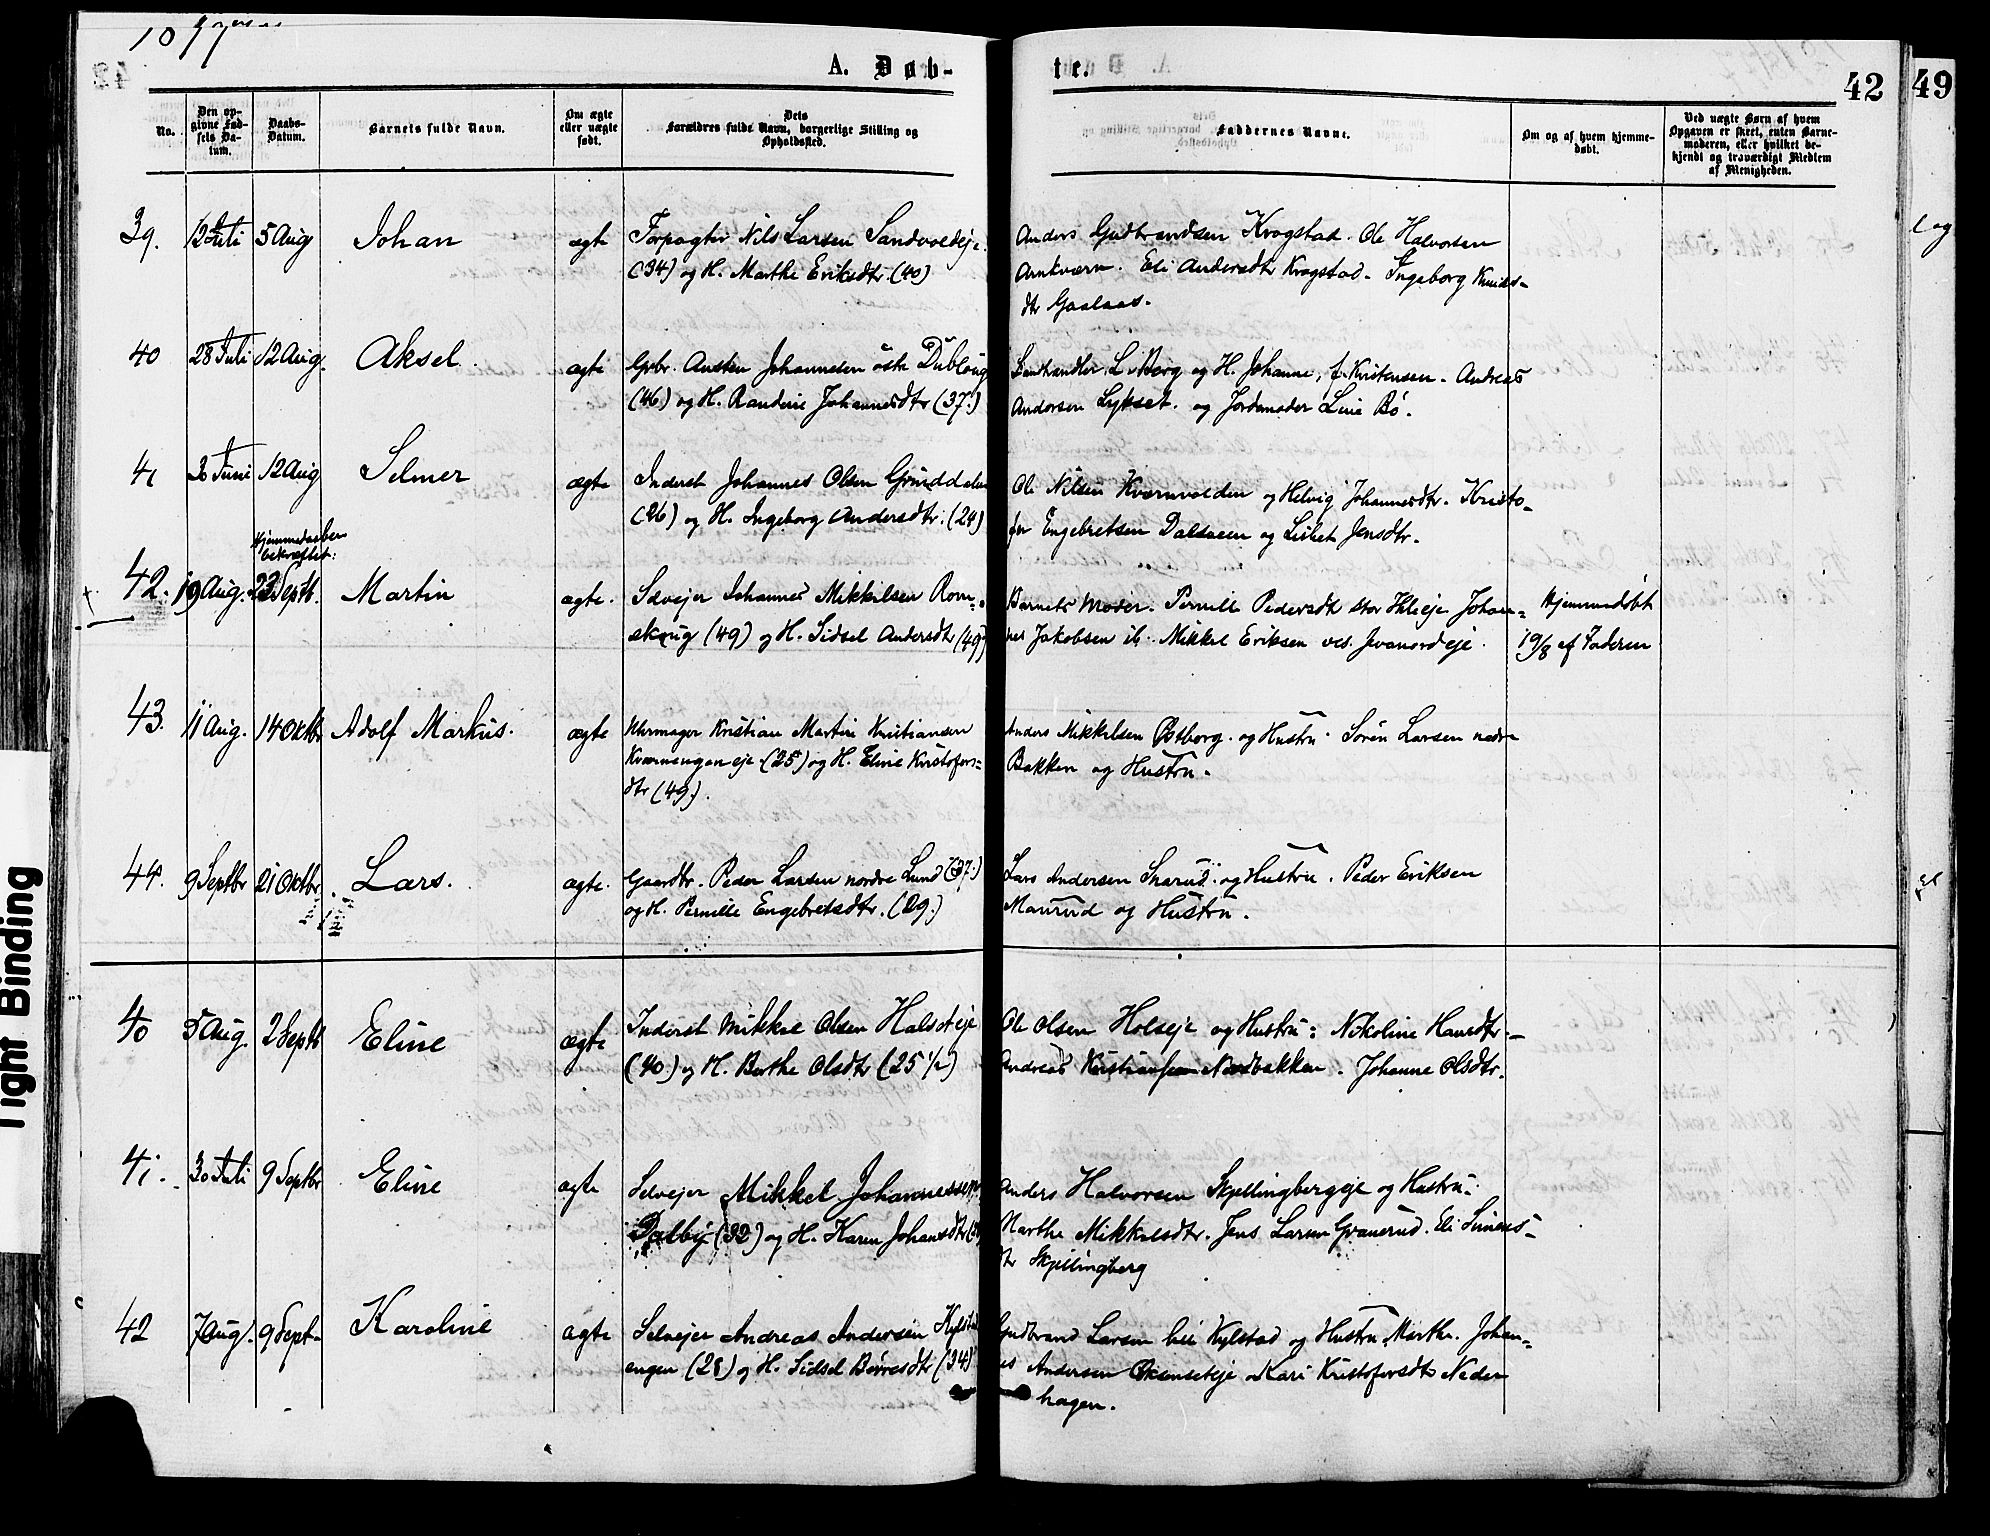 1877
A. Døb-
te.
42
49
No.
Den op-
givne Fød-
sels Da-
tum.
Daabs-
Datum.
Barnets fulde Navn.
Om ægte
eller uægte
født.
Dets
Forældres fulde Navn, borgerlige Stilling og
Opholdssted.
Faddernes Navne.
Om og af hvem hjemme-
døbt.
Ved uægte Børn af hvem
Opgaven er skeet, enten Barne-
moderen, eller hvilket be-
kjendt og troværdigt Medlem
af Menigheden.
39. 12 Juli 5 Aug Johan ægte Forpagter Nils Larsen Sandvoldeje.
(34) og H. Marthe Eriksdtr. (40)
Anders Gudbrandsen Krogstad. Ole Halvorsen
Arnkværn. Eli Andersdtr Krogstad. Ingeborg Knuds-
dtr Gaalaas.
40 28 Juli 12 Aug. Aksel. ægte Gbr. Austen Johannesen østr Dubloug
(46) og H. Randine Johannesdtr (37.)
Landhandler L. Borg og H. Johanne, f. Kristensen. Andreas
Andersen Lykset. og Jordemoder Line Bø.
41 26 Juni 12 Aug Selmer ægte Inderst Johannes Olsen Grinddalen
(26) og H. Ingeborg Andersdtr. (24)
Ole Nilsen Kværnvolden og Helvig Johannesdtr. Kristo-
fer Engebretsen Dalsveen og Lisbet Jensdtr.
Hjemmedaaben
bekræftet:
42. 19 Aug. 23 Septb. Martin ægte. Selvejer Johannes Mikkelsen Rom-
skoug (49) og H. Sidsel Andersdtr (49)
Barnets Moder. Pernille Pedersdt stor Ihleeje Johan-
nes Jakobsen ib. Mikkel Eriksen ves. Jevanordeje.
Hjemmedøbt
19/8 af Faderen
43. 11 Aug. 14 Oktbr Adolf Markus. ægte Uhrmager Kristian Martin Kristiansen
Kværnengen eje (25) og H. Eline Kristofers-
dtr (49).
Anders Mikkelsen Østborg. og Hustru. Søren Larsen nedre
Bakken og Hustru.
44. 9 Septbr 21 Oktbr. Lars. ægte. Gaardbr. Peder Larsen nordre Lund (37.)
og H. Pernille Engebretsdtr. (29.)
Lars Andersen Snarud. og Hustru. Peder Eriksen
Maurud og Hustru.
40 5 Aug. 2 Septb Eline ægte Inderst Mikkel Olsen Halseteje
(40.) og H. Berthe Olsdtr (25 1/2)
Ole Olsen Holseje og Hustru: Nikoline Hansdtr-
Andreas Kristiansen Nordbakken. Johanne Olsdtr.
41. 30 Juli 9 Septbr Eline ægte Selvejer Mikkel Johannessen
Dalby (32) og H. Karen Johansdtr
Anders Halvorsen Skjellingbergeje og Hustru.
Marthe Mikkelsdtr. Jens Larsen Granerud. Eli Simens-
dtr Skjellingberg
42 7 Aug. 9 Sept- Karoline ægte Selvejer Andreas Andersen Kylstad
engen (28) og H. Sidsel Børresdtr (34)
Gudbrand Larsen lille Kylstad og Hustru Marthe. Johan-
es Andersen Øksenseteje Kari Kristofersdtr Neder
hagen.
l og
Tight Binding